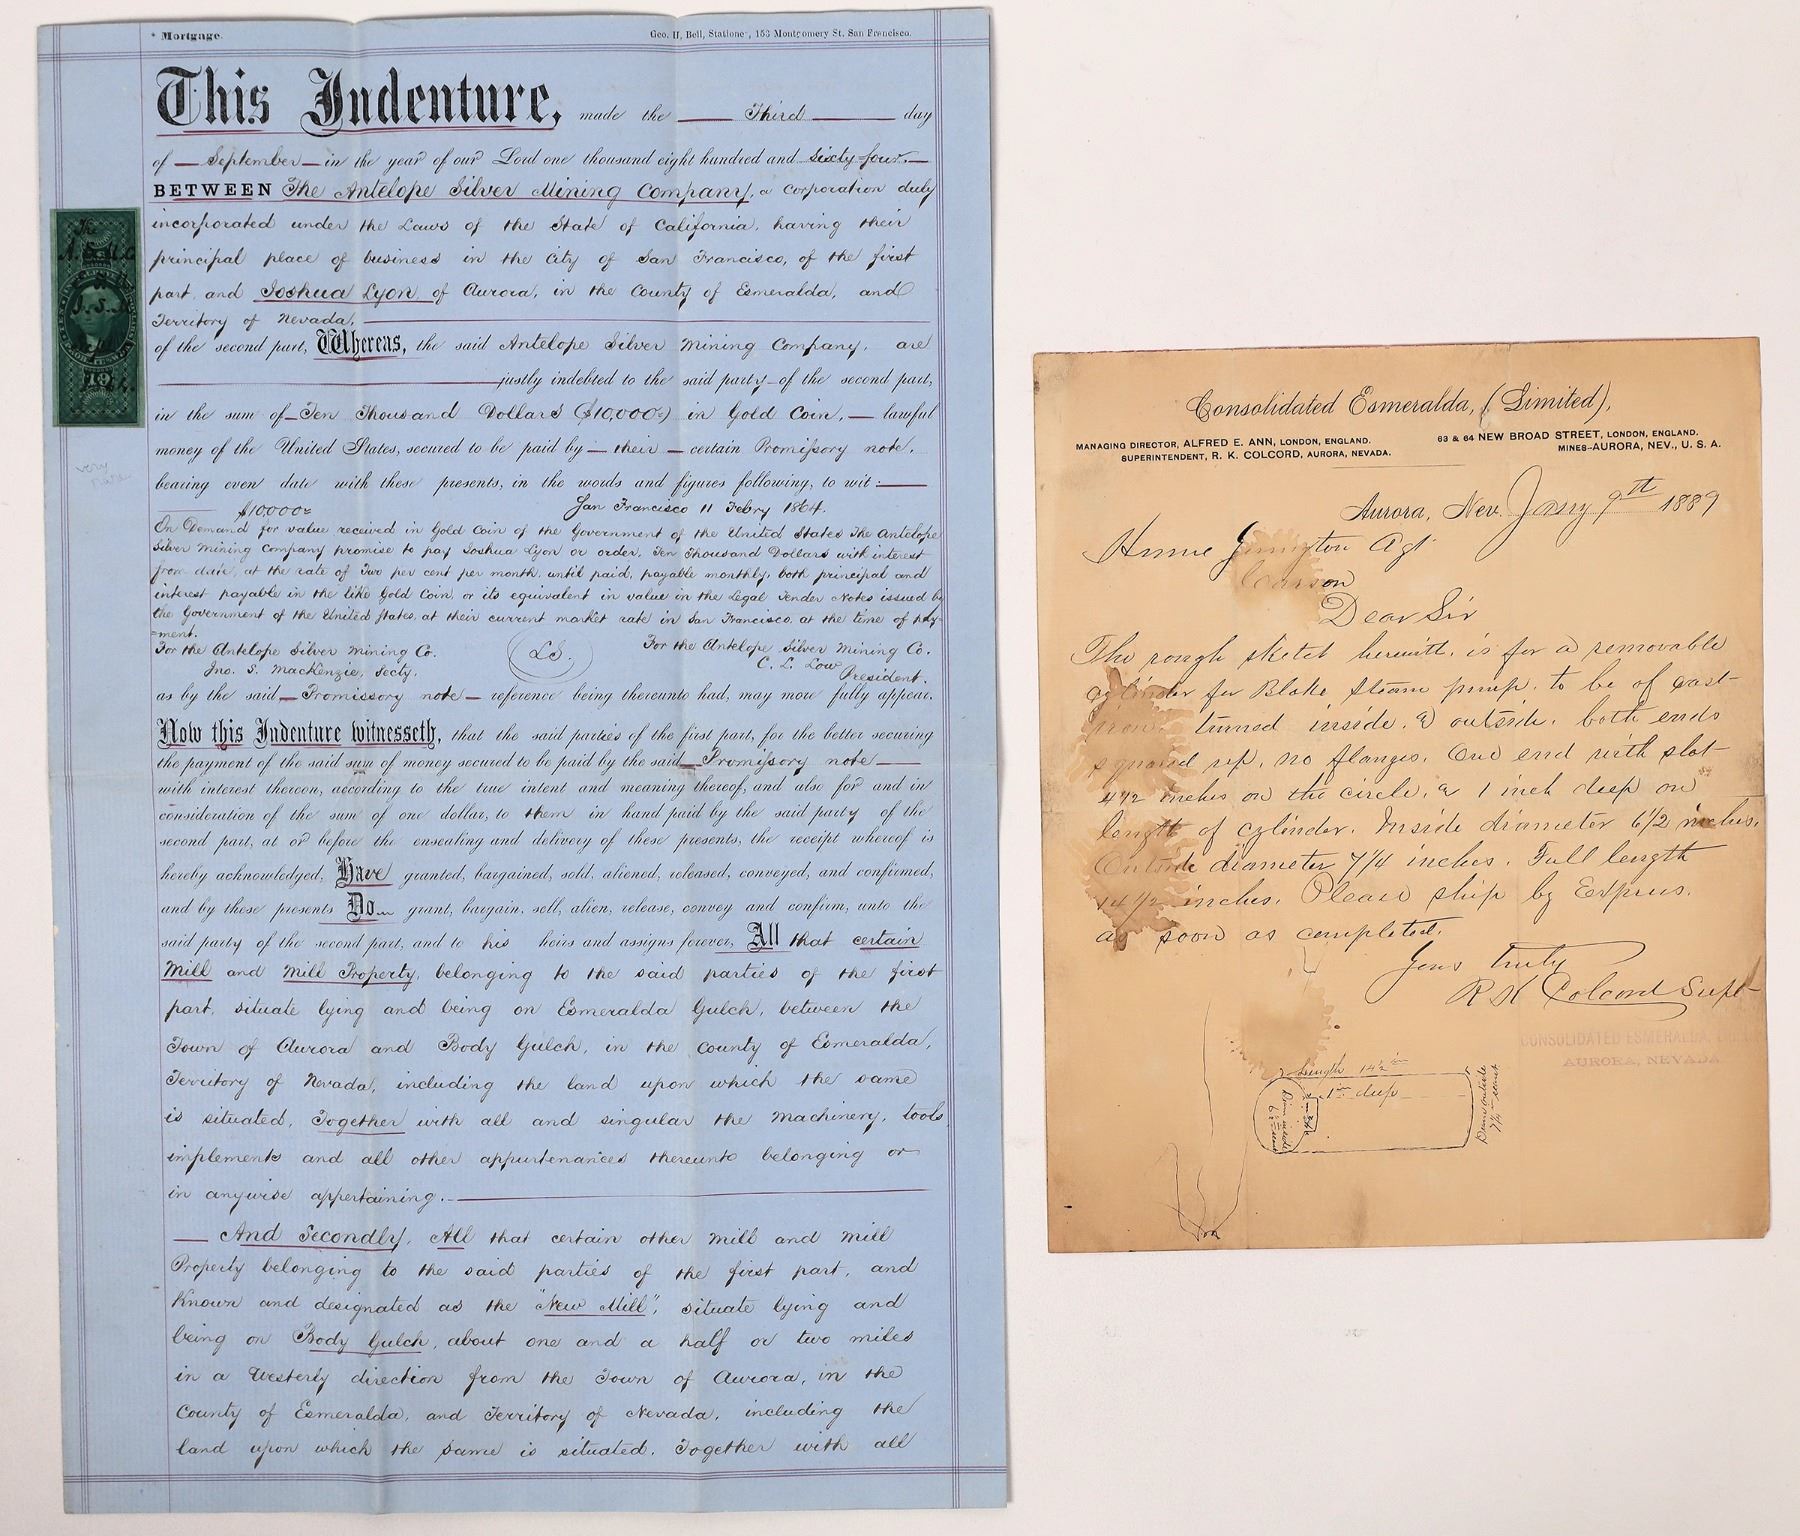 * Mortgage.
Geo. H. Bell, Stationer, 153 Montgomery St. San Francisco.
This Indenture, made the Third day
of September in the year of our Lord one thousand eight hundred and sixty four.
BETWEEN The Antelope Silver Mining Company, a corporation duly
incorporated under the Laws of the State of California, having their
principal place of business in the City of San Francisco, of the first
part, and Joshua Lyon of Aurora, in the County of Esmeralda, and
Territory of Nevada,
of the second part, Whereas, the said Antelope Silver Mining Company, are
justly indebted to the said party of the second part,
in the sum of Ten Thousand Dollars ($10,000) in Gold Coin, lawful
money of the United States, secured to be paid by their certain Promissory note,
bearing even date with these presents, in the words and figures following, to wit:
$10000 San Francisco 11 Febry 1864.
On Demand for value received in Gold Coin of the Government of the United States The Antelope
Silver Mining Company promise to pay Joshua Lyon or order, Ten Thousand Dollars with interest
from date, at the rate of Two per cent per month, until paid, payable monthly, both principal and
interest payable in the like Gold Coin, or its equivalent in value in the Legal Tender Notes issued by
the Government of the United States, at their current market rate in San Francisco, at the time of pay-
=ment.
For the Antelope Silver Mining Co. LS. For the Antelope Silver Mining Co.
Jno. S. MacKenzie, Secty. C. L. Low
President.
as by the said Promissory note reference being thereunto had, may more fully appear.
Now this Indenture witnesseth, that the said parties of the first part, for the better securing
the payment of the said sum of money secured to be paid by the said Promissory note
with interest thereon, according to the true intent and meaning thereof, and also for and in
consideration of the sum of one dollar, to them in hand paid by the said party of the
second part, at or before the ensealing and delivery of these presents, the receipt whereof is
hereby acknowledged, Have granted, bargained, sold, aliened, released, conveyed, and confirmed,
and by these presents Do grant, bargain, sell, alien, release, convey and confirm, unto the
said party of the second part, and to his heirs and assigns forever, All that certain
Mill and Mill Property, belonging to the said parties of the first
part, situate lying and being on Esmeralda Gulch, between the
Town of Aurora and Body Gulch, in the County of Esmeralda,
Territory of Nevada, including the land upon which the same
is situated, Together with all and singular the Machinery, tools
implements and all other appurtenances thereunto belonging or
in anywise appertaining.
And Secondly, All that certain other Mill and Mill
Property belonging to the said parties of the first part, and
Known and designated as the "New Mill", situate lying and
being on Body Gulch, about one and a half or two miles
in a Westerly direction from the Town of Aurora, in the
County of Esmeralda, and Territory of Nevada, including the
land upon which the same is situated. Together with all
very
rare
Consolidated Esmeralda, (Limited),
MANAGING DIRECTOR, ALFRED E. ANN, LONDON, ENGLAND.
SUPERINTENDENT, R. K. COLCORD, AURORA, NEVADA.
63 & 64 NEW BROAD STREET, LONDON, ENGLAND.
MINES-AURORA, NEV., U. S. A.
Aurora, Nev. Jany 9th 1889
Hume Yerington Agt
Carson
Dear Sir
The rough sketch herewith, is for a removable
cylinder for Blake steam pump, to be of cast
iron, turned inside, & outside, both ends
squared up, no flanges. One end with slot
4 1/2 inches on the circle, & 1 inch deep on
length of cylinder. Inside diameter 6 1/2 inches.
Outside diameter 7 1/4 inches. Full length
14 1/2 inches. Please ship by Express.
as soon as completed.
Yours truly
R K Colcord Supt
CONSOLIDATED ESMERALDA,
AURORA, NEVADA
Length 14 1/2 in
1 in deep
Diam inside
6 1/2
Diam outside
7 1/4